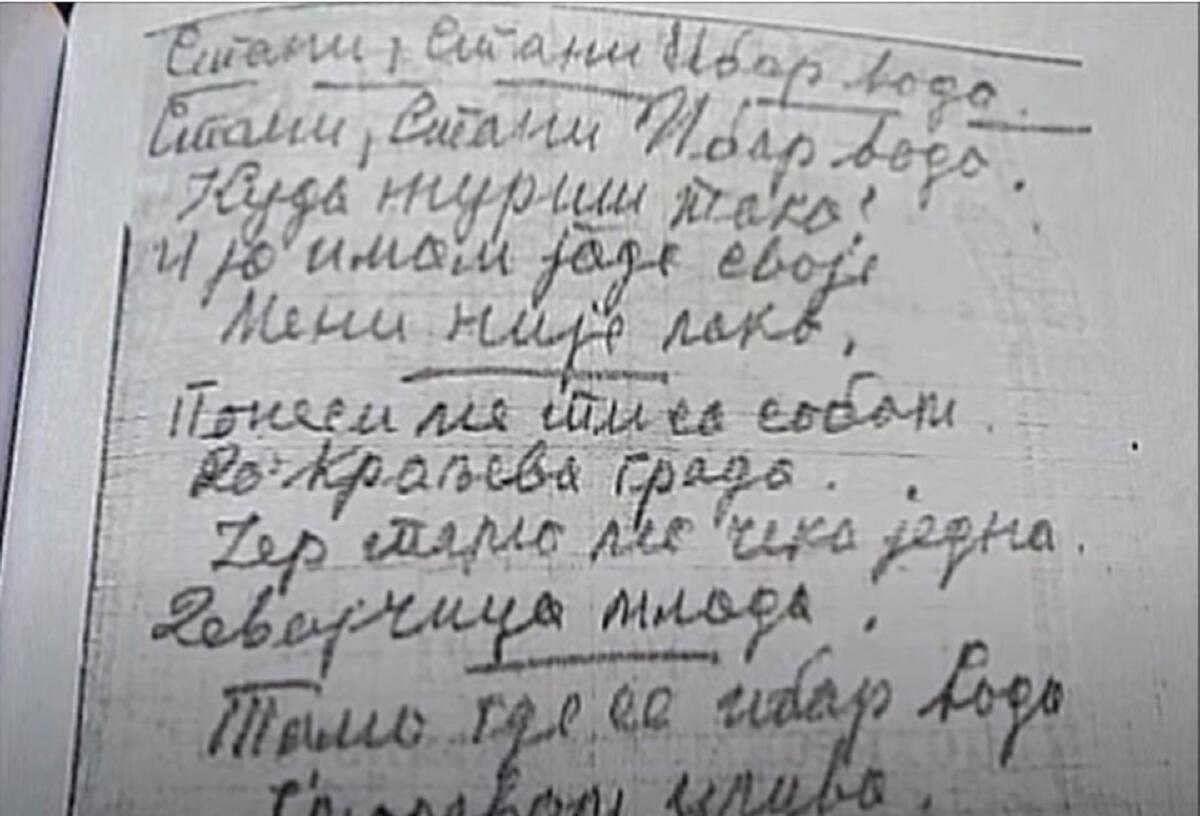 Стани, Стани Ибар водо.
Стани, Стани Ибар водо.
Куда журиш тако!
И ја имам јаде своје
Мени није лако,
Понеси ме ти са собом.
До Краљева града.
Јер тамо ме чека једна.
Девојчица млада.
Тамо где се ибар вода